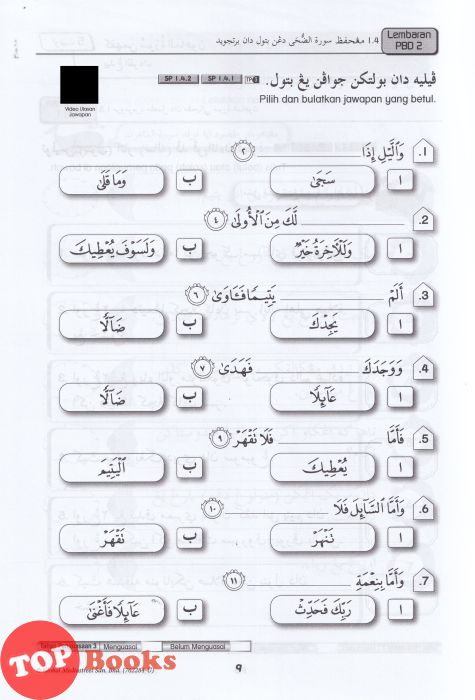 Lembaran
PBD 2
1.4 مڠحفظ سورة الضّحى دڠن بتول دان برتجويد
ڤيليه دان بولتکن جواڤن يڠ بتول.
TP 3 SP 1.4.1 SP 1.4.2
Pilih dan bulatkan jawapan yang betul.
Video Ulasan
Jawapan
1. وَٱلَّيۡلِ إِذَا ____________ ٢
ا سَجَىٰ ب وَمَا قَلَىٰ
2. ____________ لَّكَ مِنَ ٱلۡأُولَىٰ ٤
ا وَلَلۡأٓخِرَةُ خَيۡرٞ ب وَلَسَوۡفَ يُعۡطِيكَ
3. أَلَمۡ ____________ يَتِيمٗا فَـَٔاوَىٰ ٦
ا يَجِدۡكَ ب ضَآلّٗا
4. وَوَجَدَكَ ____________ فَهَدَىٰ ٧
ا عَآئِلٗا ب ضَآلّٗا
5. فَأَمَّا ____________ فَلَا تَقۡهَرۡ ٩
ا يُعۡطِيكَ ب ٱلۡيَتِيمَ
6. وَأَمَّا ٱلسَّآئِلَ فَلَا ____________ ١٠
ا تَنۡهَرۡ ب تَقۡهَرۡ
7. وَأَمَّا بِنِعۡمَةِ ____________ ١١
ا رَبِّكَ فَحَدِّثۡ ب عَآئِلٗا فَأَغۡنَىٰ
3 Menguasai Belum Menguasai
٩
TOP Books